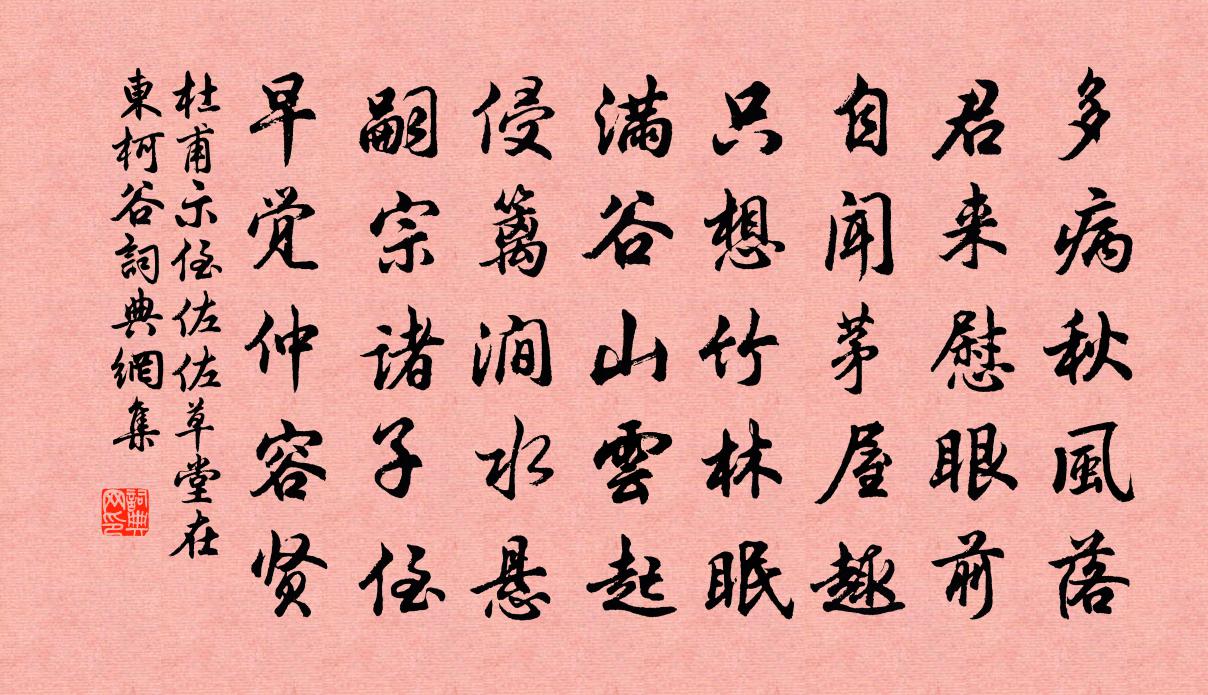 多病秋風落
君来慰眼前
自闻茅屋趣
只想竹林眠
满谷山雲起
侵篱澗水悬
嗣宗諸子侄
早觉仲容贤
杜甫示侄佐佐草堂在
東柯谷詞典網集
詞典
网印